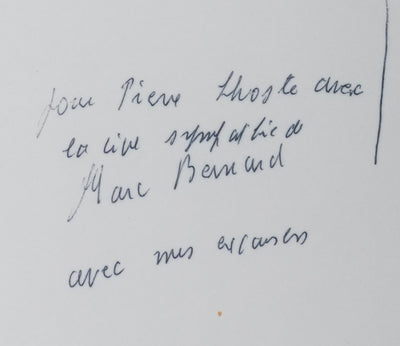 pour Pierre Lhoste avec
la vive sympathie de
Marc Bernard
avec mes excuses